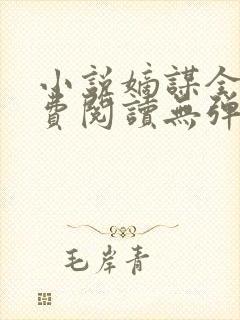 小説嫡謀全
費閱讀無彈
毛岸青